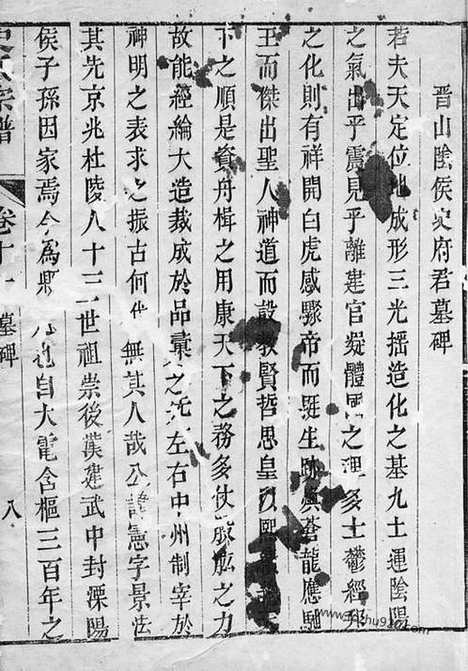 晋山陰侯史府君墓碑
若夫天定位地成形三光揺造化之基九土運陰陽
之氣出乎震見乎離建官凝體國之理多士鬱經
之化則有祥開白虎感驟帝而挺生跡興蒼龍應馳
王而傑出聖人神道而設教賢哲思皇以熙
下之順是資舟楫之用康天下之務多仗股肱之力
故能經綸大造裁成於品彙之先左右中州制宰於
神明之表求之振古何代無其人哉公諱憲字景法
其先京兆杜陵人十三世祖崇後漢建武中封溧陽
侯子孫因家焉今為縣人也自大電含樞三百年之
史氏宗譜
卷十一
墓碑
八